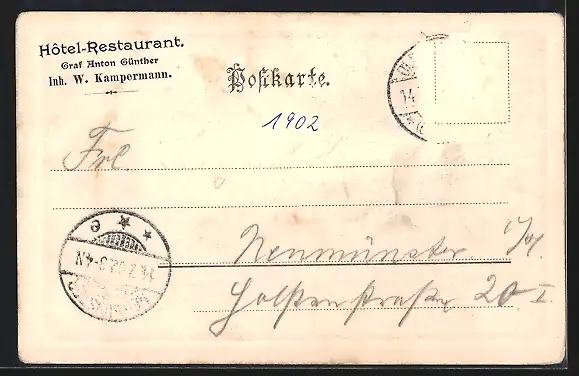 Hôtel-Restaurant.
Graf Anton Günther
Inh. W. Kampermann.
Postkarte.
14.
1902
Frl.
Neumünster
Holstenstraße 20 I.